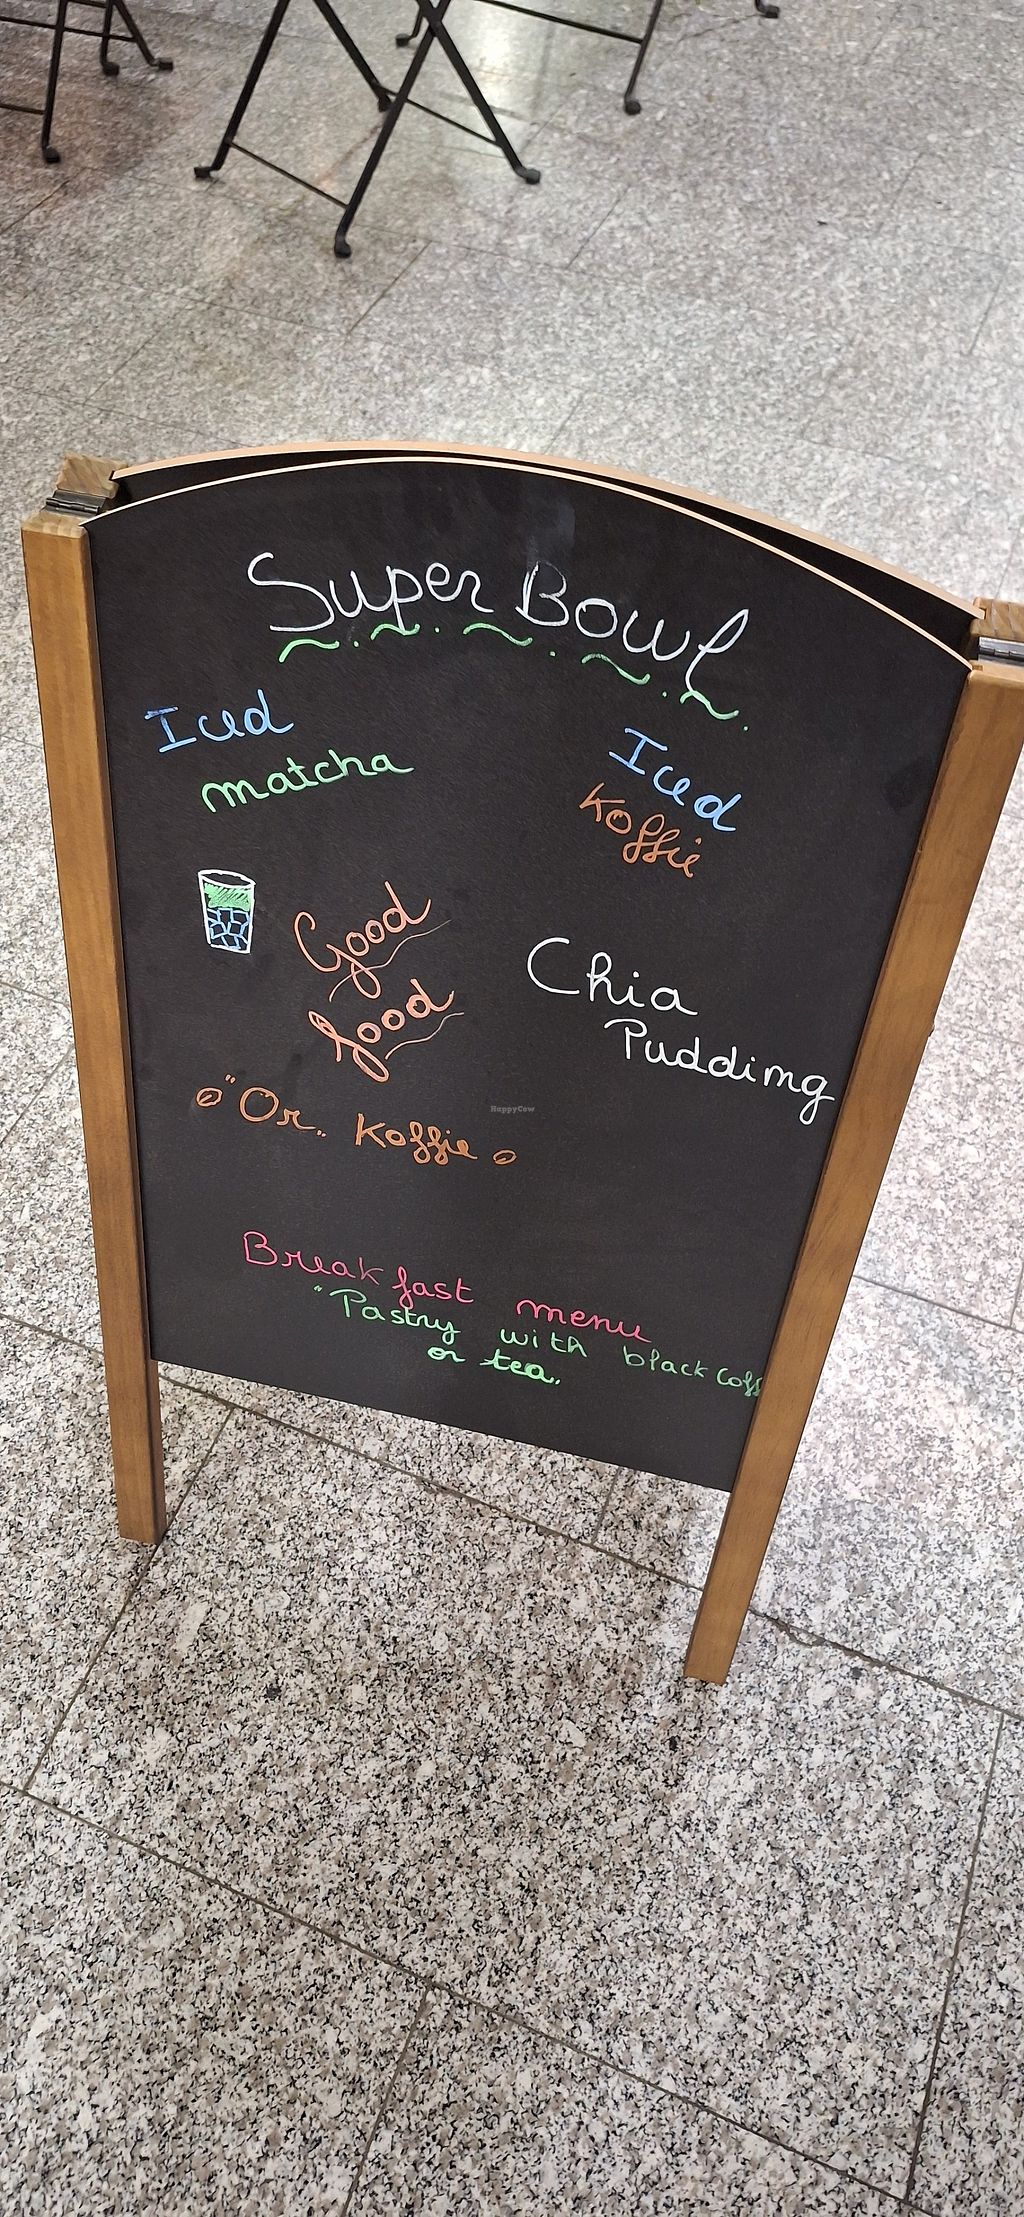 Super Bowl
Iced
matcha
Iced
Koffie
Good
food
Chia
Pudding
"Or.. Koffie
Breakfast menu
"Pastry with black coff
or tea.
HappyCow